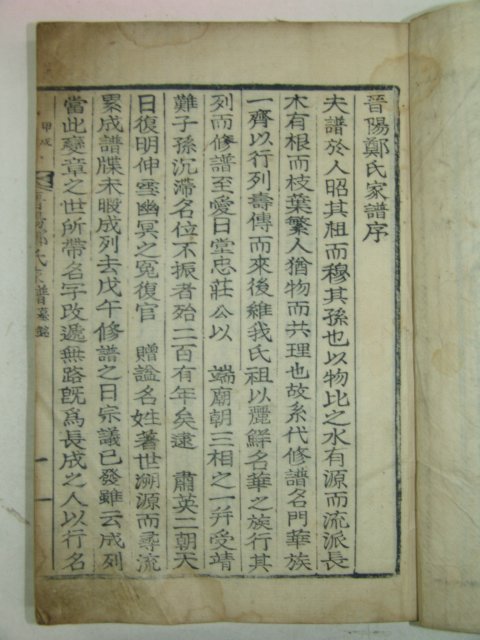 晋陽鄭氏家譜序
夫譜於人昭其祖而穆其孫也以物比之水有源而流派長
木有根而枝葉繁人猶物而共理也故系代修譜名門華族
一齊以行列壽傳而來後維我氏祖以麗鮮名華之族行其
列而修譜至愛日堂忠莊公以 端廟朝三相之一幷受靖
難子孫沉滯名位不振者殆二百有年矣逮 肅英二朝天
日復明伸雪幽冥之冤復官 贈謚名姓著世溯源而尋流
累成譜牒未暇成列去戊午修譜之日宗議已發雖云成列
當此變章之世所帶名字改遞無路旣爲長成之人以行名
甲戌
氏
譜
一